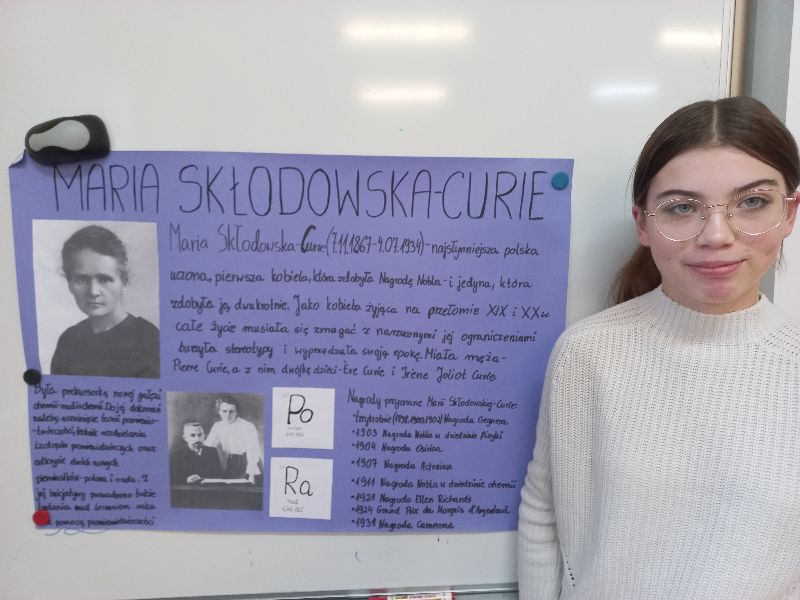 MARIA SKŁODOWSKA-CURIE
Maria Skłodowska-Curie (7.11.1867-4.07.1934)-najsłynniejsza polska
uczona, pierwsza kobieta, która zdobyła Nagrodę Nobla - i jedyna, która
zdobyła ją dwukrotnie. Jako kobieta żyjąca na przełomie XIX i XX w.
całe życie musiała się zmagać z narzuconymi jej ograniczeniami
burzyła stereotypy i wyprzedzała swoją epokę. Miała męża-
Pierre Curie, a z nim dwójkę dzieci-Ève Curie i Irène Joliot Curie
Była prekursorką nowej gałęzi
chemii-radiochemii. Do jej dokonań
należą: rozwinięcie teorii promienio-
-twórczości, technik rozdzielania
izotopów promieniotwórczych oraz
odkrycie dwóch nowych
pierwiastków-polonu i radu. Z
jej inicjatywy prowadzono także
badania nad leczeniem raka
za pomocą promieniotwórczości
Po
Ra
Nagrody przyznane Marii Skłodowskiej-Curie:
•trzykrotnie (1898, 1900, 1902) Nagroda Gegnera
•1903 Nagroda Nobla w dziedzinie fizyki
•1904 Nagroda Osirisa
•1907 Nagroda Actonian
•1911 Nagroda Nobla w dziedzinie chemii
•1921 Nagroda Ellen Richards
•1924 Grand Prix du Marquis d'Argenteuil
•1931 Nagroda Camerona